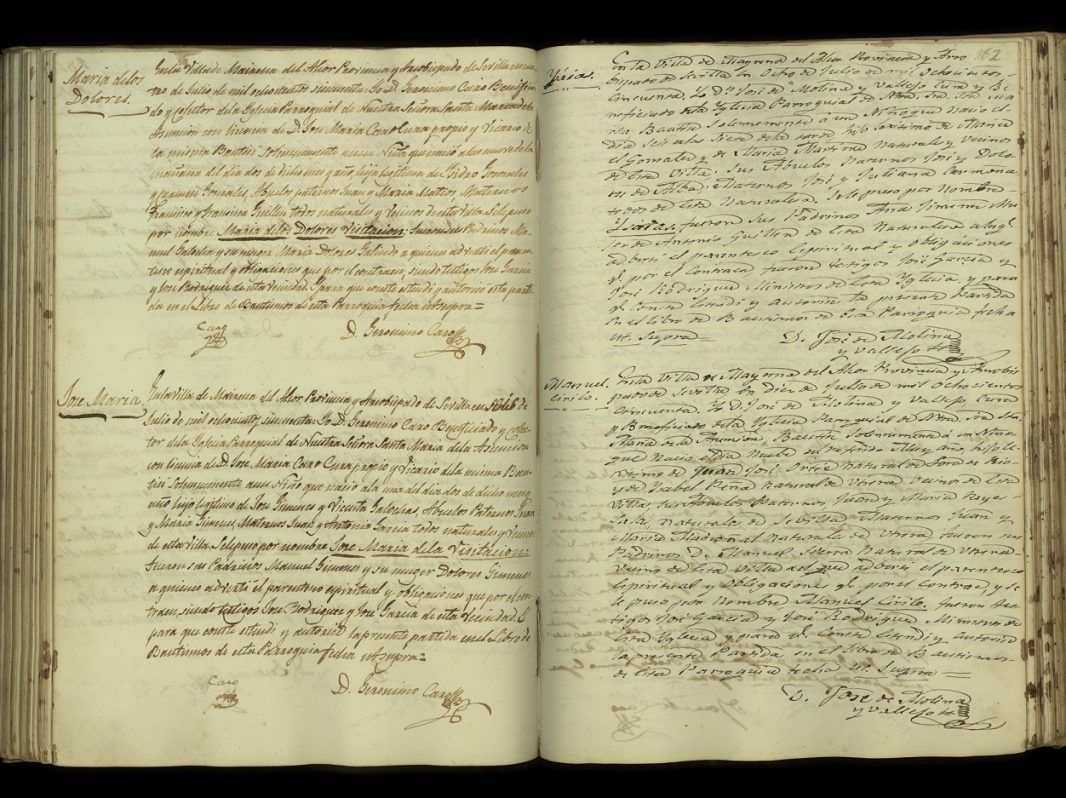 Maria de los
Dolores.
En la Villa de Mairena del Alcor Provincia y Arzobispado de Sevilla en cua
tro de Julio de mil ochocientos cincuenta: Yo D. Geronimo Caro Beneficia
do y colector de la Iglesia Parroquial de Nuestra Señora Santa Maria de la
Asuncion con licencia de D. Jose Maria Caro Cura propio y Vicario de
la misma Bautisé solemnemente una Niña que nació a las nueve de la
mañana del dia dos de dicho mes y año, hija legitima de Isidro Gonzales
y Gonzales, Abuelos paternos Juan y Maria Mateos, Maternos
Francisco y Francisca Guillen todos naturales y vecinos de esta Villa. Se le puso
por nombre Maria de los Dolores Visitacion:
y su muger Maria Dolores a quienes advertí el parentes
co espiritual y obligaciones que por el contraen, siendo testigos Jose Garcia
y Jose Rodriguez de esta Vecindad. Y para que conste estendi y autorisé esta parti
da en el Libro de Bautismos de esta Parroquia fecha ut supra=
Caro
D. Geronimo Caro
Jose Maria
En la Villa de Mairena del Alcor Provincia y Arzobispado de Sevilla en de
Julio de mil ochocientos cincuenta: Yo D. Geronimo Caro Beneficiado y colec
tor de la Iglesia Parroquial de Nuestra Señora Santa Maria de la Asuncion
con licencia de D. Jose Maria Caro Cura propio y Vicario de la misma Bau
tisé solemnemente un Niño que nació a la una del dia dos de dicho mes y
año hijo legitimo de Jose Gimenes y Vicenta Iglesias, Abuelos Paternos Juan
y Maria Gimenes, Maternos Juan y Antonia Garcia todos naturales y Vecinos
de esta Villa. Se le puso por nombre Jose Maria de la Visitacion:
fueron sus Padrinos Manuel Gimenes y su muger Dolores Gimenes
a quienes advertí el parentesco espiritual y obligaciones que por el con
traen, siendo testigos Jose Rodriguez y Jose Garcia de esta Vecindad. Y
para que conste estendi y autorisé la presente partida en el Libro de
Bautismos de esta Parroquia fecha ut supra=
Caro
D. Geronimo Caro
182
En la Villa de Mayrena del Alcor Provincia y Arzo
bispado de Sevilla en Ocho de Julio de mil Ochocientos
Cincuenta. Yo Dn. José de Molina y Vallejo Cura y Be
neficiado de esta Yglesia Parroquial de Ntra. Sra. Sta. Ma
ria Bautisé Solemnemente á un Niño que nació el
Dia Seis hijo lexitimo de
el Gonzalez y de Maria naturales y vecinos
de esta Villa. Sus Abuelos Paternos José y Dolo
res de Alba: Maternos José y Juliana
todos de esta Naturaleza. Se le puso por Nombre
fueron sus Padrinos Ana Jimenez Mu
ger de Antonio Guillen de esta Naturaleza
advertí el parentesco Espiritual y Obligaciones
q. por el Contrae fueron testigos José Garcia y
José Rodriguez Ministros de esta Yglesia, y para
q. Conste Estendi y autorise la presente Partida
En el libro de Bautismos de esta Parroquia fecha
ut Supra
D. José de Molina
y Vallejo
Manuel
Cirilo.
En la Villa de Mayrena del Alcor Provincia y Arzobis
pado de Sevilla en Diez de Julio de mil Ochocientos
Cincuenta. Yo D. José de Molina y Vallejo Cura
y Beneficiado de esta Yglesia Parroquial de Ntra. Sra. Sta.
Maria de la Asuncion, Bautisé Solemnemente á un Niño
que Nació el Dia Nueve del referido Mes y Año, hijo le
xitimo de Juan José Ortiz Natural de
y de Ysabel Peña Natural de Utrera Vecinos de Esta
Villa, sus Abuelos Paternos Juan y Maria
Naturales de Sevilla: Maternos Juan y
Maria Naturales de Utrera fueron sus
Padrinos D. Manuel Natural de Utrera
Vecino de Esta Villa al que adverti el parentesco
Espiritual y Obligaciones q. por el Contrae, y se
le puso por Nombre Manuel Cirilo: fueron tes
tigos José Garcia y José Rodriguez Ministros de
Esta Yglesia y para q. Conste Estendi y autorise
la presente Partida en el libro de Bautismos
de Esta Parroquia fecha ut Supra
D. José de Molina
y Vallejo